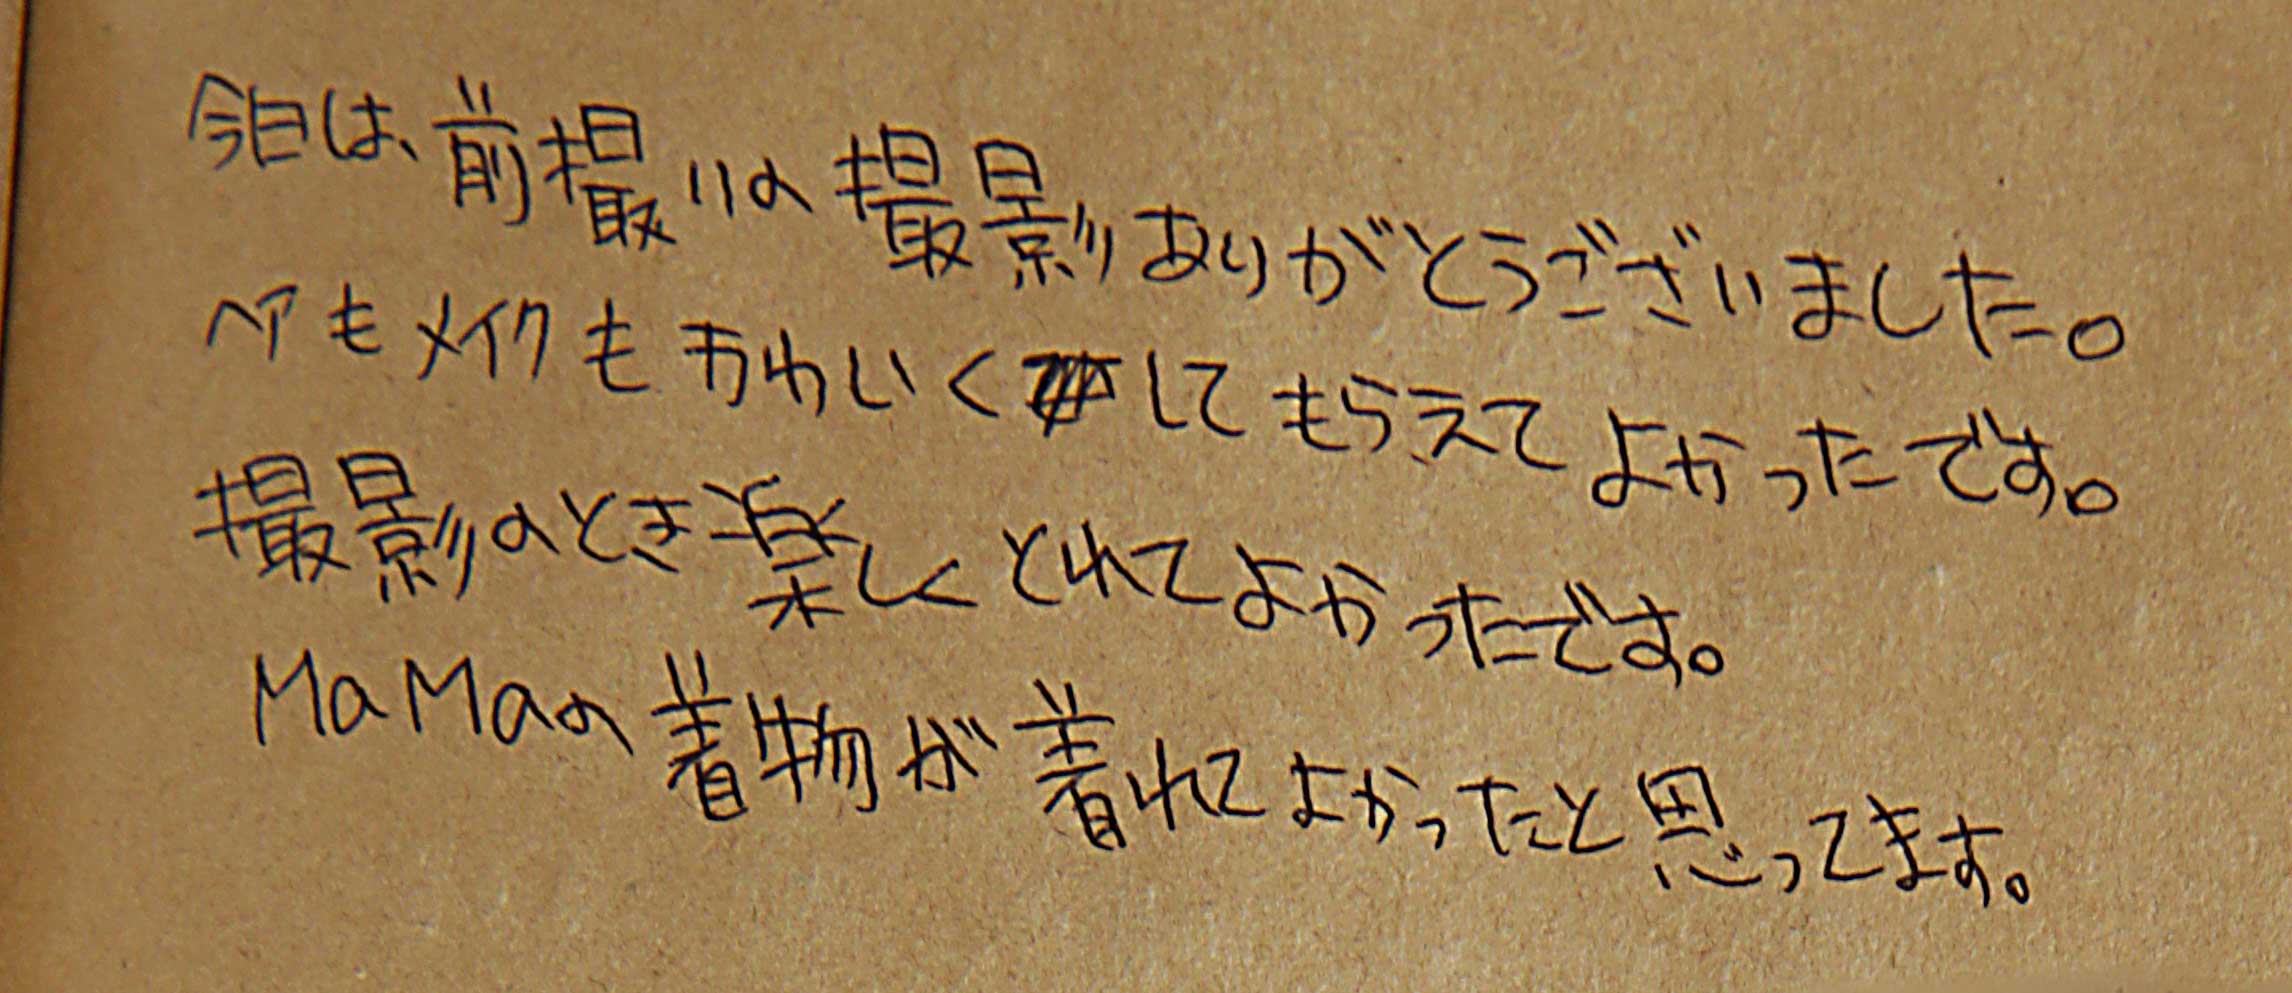 今日は、前撮りの撮影ありがとうございました。
ヘアもメイクもかわいくしてもらえてよかったです。
撮影のとき楽しくとれてよかったです。
MaMaの着物が着れてよかったと思ってます。